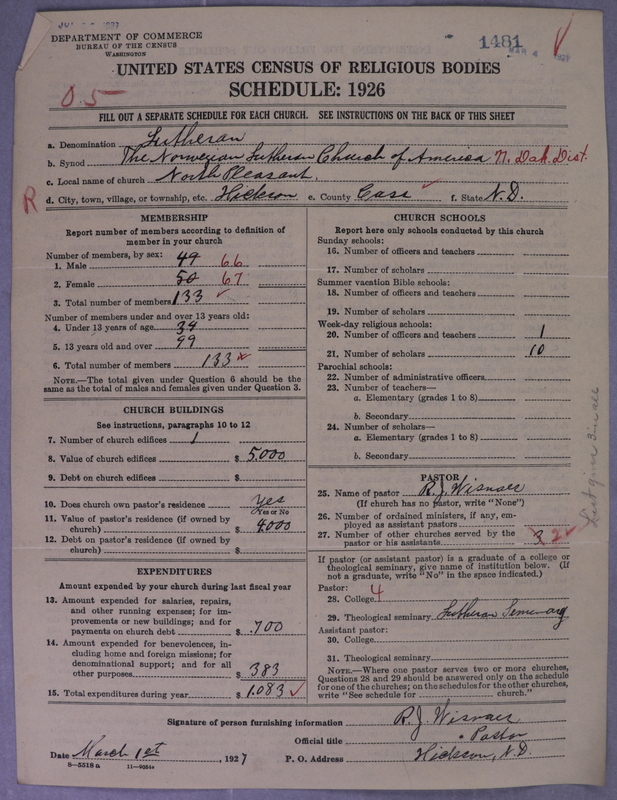 DEPARTMENT OF COMMERCE
BUREAU OF THE CENSUS
WASHINGTON
1481
MAR 4 1927
UNITED STATES CENSUS OF RELIGIOUS BODIES
SCHEDULE: 1926
0.5
FILL OUT A SEPARATE SCHEDULE FOR EACH CHURCH. SEE INSTRUCTIONS ON THE BACK OF THIS SHEET
a. Denomination Lutheran
b. Synod The Norwegian Lutheran Church of America N. Dak. Dist.
c. Local name of church North Pleasant.
R d. City, town, village, or township, etc. Hickson e. County Cass f. State N.D.
MEMBERSHIP
Report number of members according to definition of
member in your church
Number of members, by sex:
1. Male 49 66
2. Female 50 67
3. Total number of members 133
Number of members under and over 13 years old:
4. Under 13 years of age 34
5. 13 years old and over 99
6. Total number of members 133
NOTE.—The total given under Question 6 should be the
same as the total of males and females given under Question 3.
CHURCH BUILDINGS
See instructions, paragraphs 10 to 12
7. Number of church edifices 1
8. Value of church edifices $ 5.000
9. Debt on church edifices $
10. Does church own pastor's residence Yes
Yes or No
11. Value of pastor's residence (if owned by
church) $ 4.000
12. Debt on pastor's residence (if owned by
church) $
EXPENDITURES
Amount expended by your church during last fiscal year
13. Amount expended for salaries, repairs,
and other running expenses; for im-
provements or new buildings; and for
payments on church debt $ 700
14. Amount expended for benevolences, in-
cluding home and foreign missions; for
denominational support; and for all
other purposes $ 383
15. Total expenditures during year $ 1.083
CHURCH SCHOOLS
Report here only schools conducted by this church
Sunday schools:
16. Number of officers and teachers
17. Number of scholars
Summer vacation Bible schools:
18. Number of officers and teachers
19. Number of scholars
Week-day religious schools:
20. Number of officers and teachers 1
21. Number of scholars 10
Parochial schools:
22. Number of administrative officers
23. Number of teachers—
a. Elementary (grades 1 to 8)
b. Secondary
24. Number of scholars—
a. Elementary (grades 1 to 8)
b. Secondary
PASTOR
25. Name of pastor R. J. Wisnaes
(If church has no pastor, write "None")
26. Number of ordained ministers, if any, em-
ployed as assistant pastors
27. Number of other churches served by the
pastor or his assistants 3 2
If pastor (or assistant pastor) is a graduate of a college or
theological seminary, give name of institution below. (If
not a graduate, write "No" in the space indicated.)
Pastor:
28. College 4
29. Theological seminary Lutheran Seminary
Assistant pastor:
30. College
31. Theological seminary
NOTE.—Where one pastor serves two or more churches,
Questions 28 and 29 should be answered only on the schedule
for one of the churches; on the schedules for the other churches,
write "See schedule for church."
Signature of person furnishing information R. J. Wisnaes
Official title Pastor
Date March 1st, 1927 P. O. Address Hickson, N.D.
8—5518 a